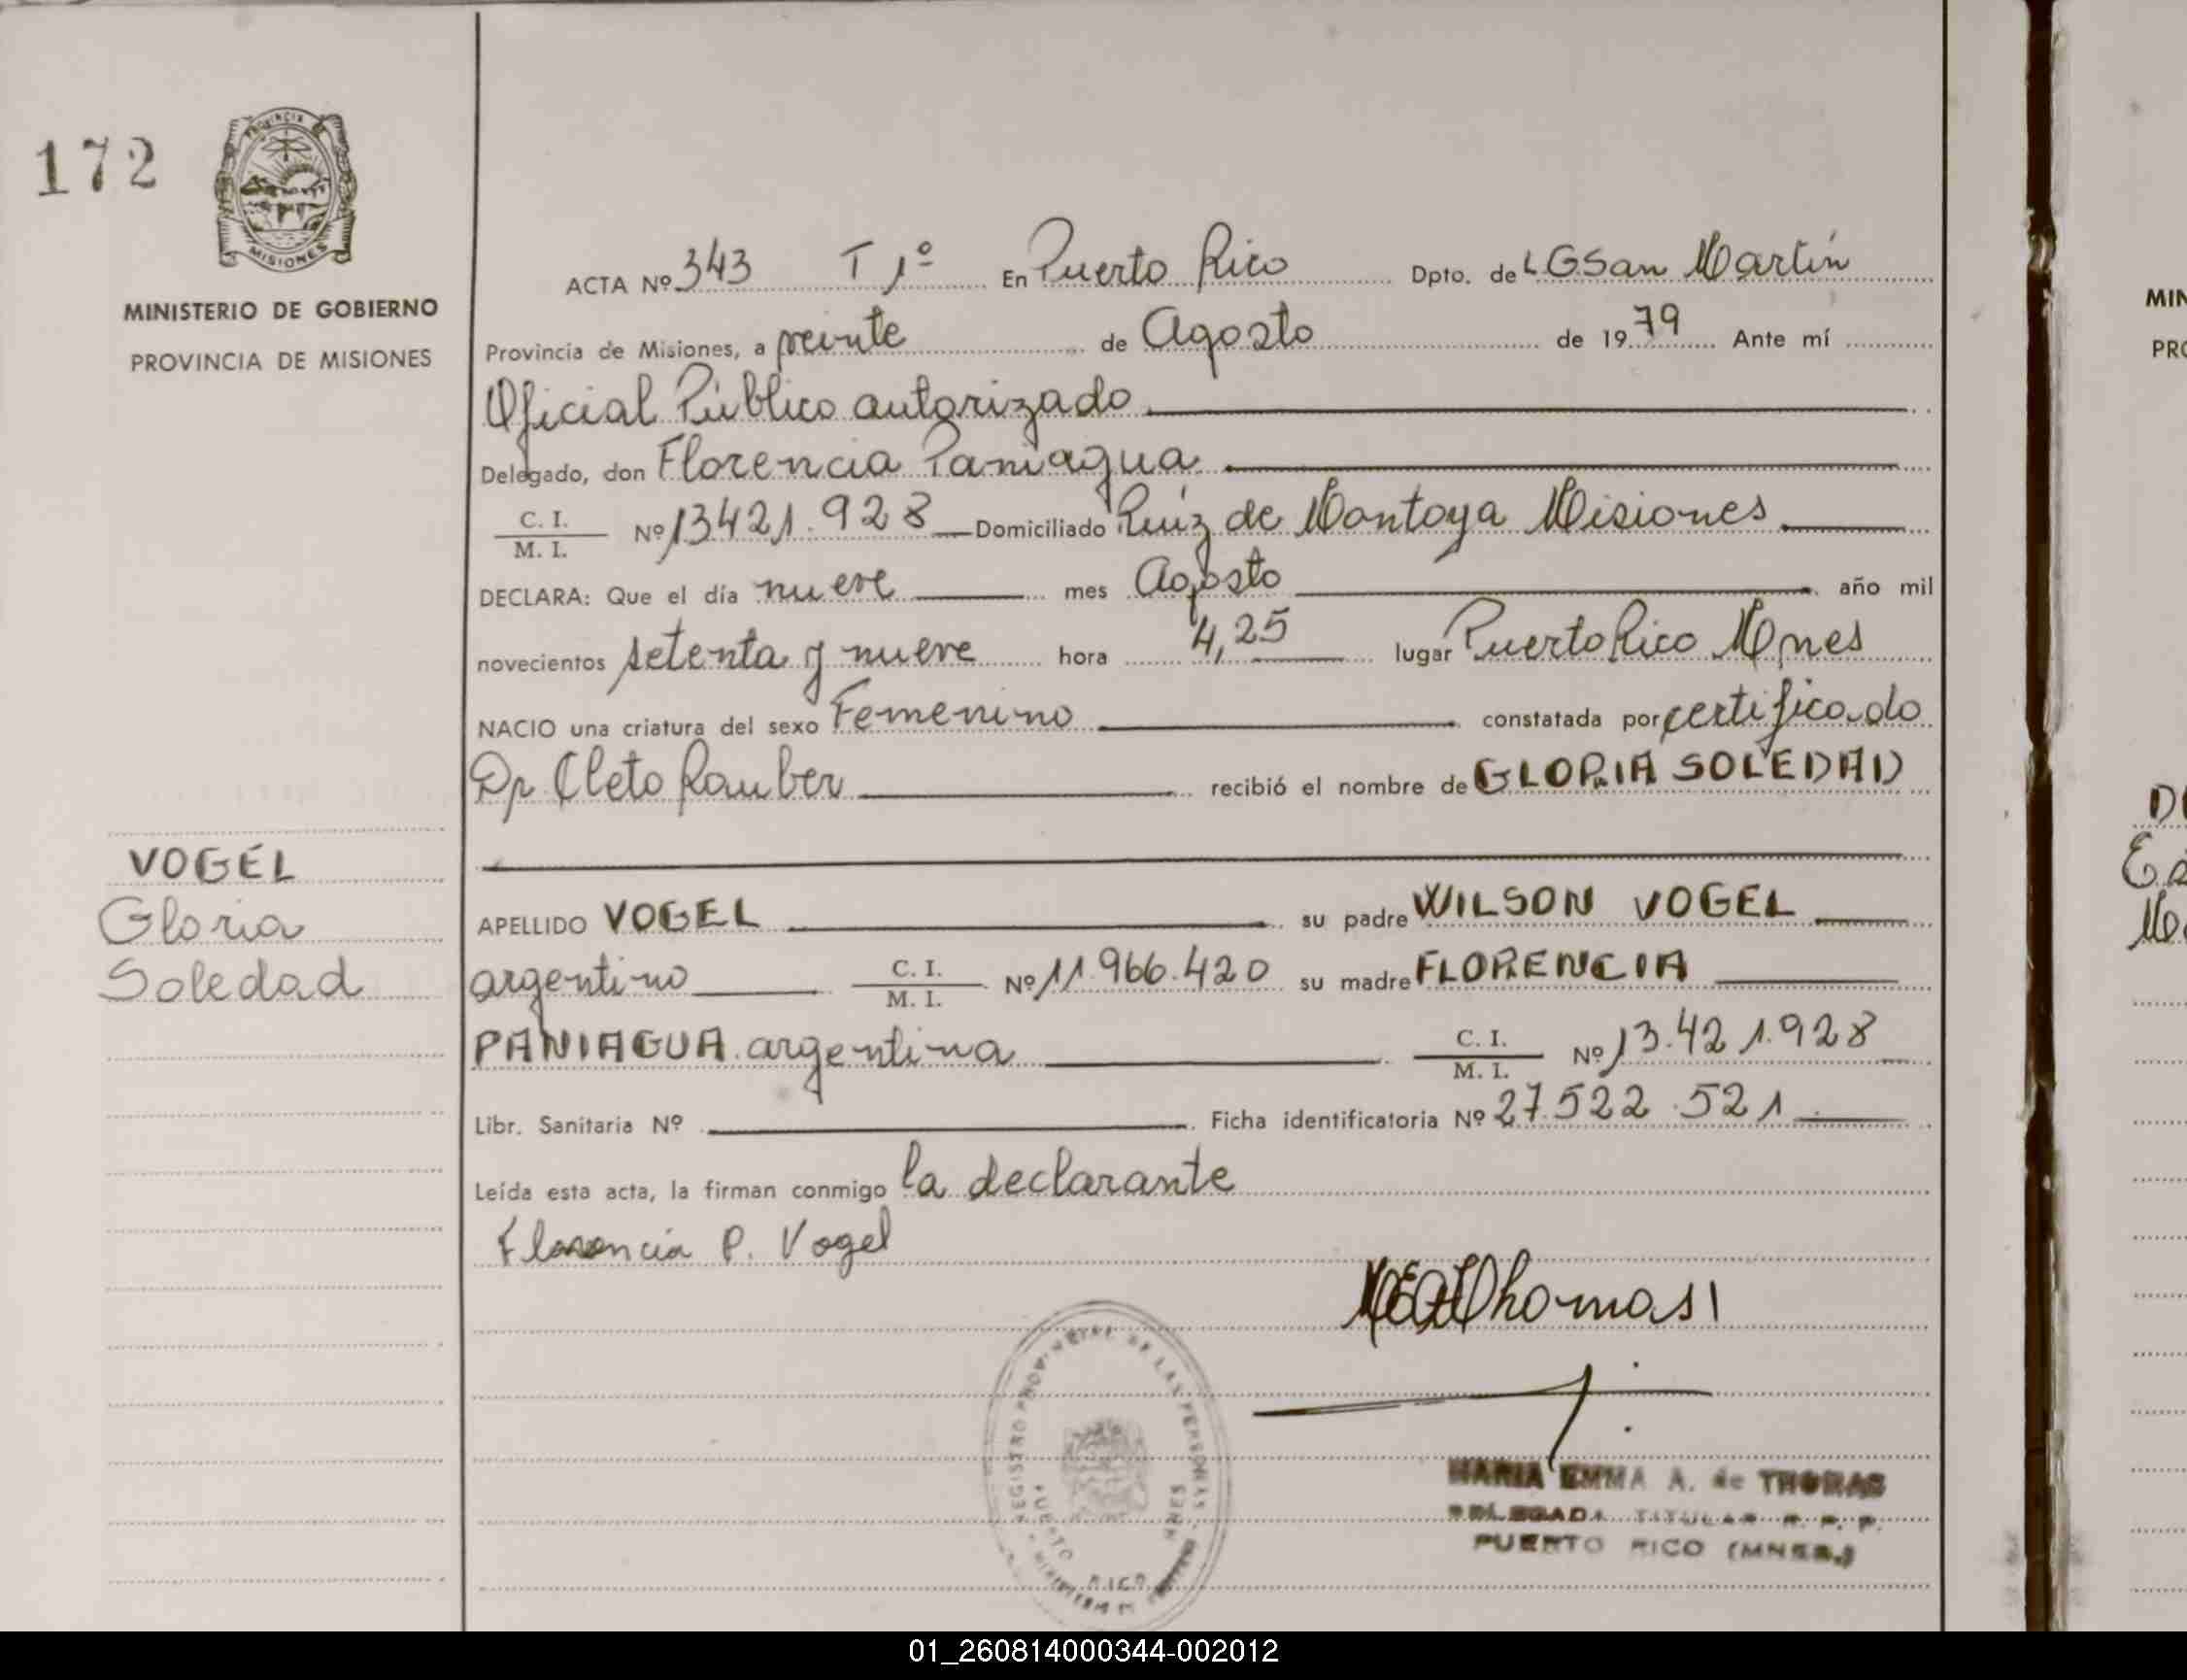 172
PROVINCIA DE
MISIONES
MINISTERIO DE GOBIERNO
PROVINCIA DE MISIONES
VOGEL
Gloria
Soledad
ACTA Nº 343 T 1º En Puerto Rico Dpto. de L G San Martín
Provincia de Misiones, a veinte de Agosto de 1979 Ante mí
Oficial Público autorizado
Delegado, don Florencia Paniagua
C. I.
M. I. Nº 13421.928 Domiciliado Ruíz de Montoya Misiones
DECLARA: Que el día nueve mes Agosto año mil
novecientos setenta y nueve hora 4,25 lugar Puerto Rico Mnes
NACIO una criatura del sexo Femenino constatada por certificado
Dr Cleto Rauber recibió el nombre de GLORIA SOLEDAD
APELLIDO VOGEL su padre WILSON VOGEL
argentino C. I. M. I. Nº 11.966.420 su madre FLORENCIA
PANIAGUA argentina C. I. M. I. Nº 13.421.928
Libr. Sanitaria Nº Ficha identificatoria Nº 27.522.521
Leída esta acta, la firman conmigo la declarante
Florencia P. Vogel
Thomas
REGISTRO PROVINCIAL DE LAS PERSONAS
PUERTO RICO MNES
MARIA EMMA A. de THOMAS
DELEGADA TITULAR R. P. P.
PUERTO RICO (MNES.)
MIN
PRO
01_260814000344-002012